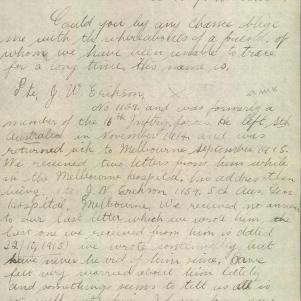 Could you by any chance oblige
me with the whereabouts of a friend, of
whom we have been unable to trace
for a long time, his name is,
Pte. J. W. Erickson,
No 1159, and was formerly a
member of the 16th Infantry forces. He left Sth
Australia in November 1914, and was
returned sick to Melbourne September 1915.
We received two letters from him while
in the Melbourne Hospital, his address then
being, Pte. J. W. Erickson 1159, 5th Aus. Gen.
Hospital, Melbourne. We received no answer
to our last letter which we wrote him, the
last one we received from him is dated
22/10/1915) we wrote constantly but
have never heard of him since,
felt very worried about him lately
and something seems to tell us all is